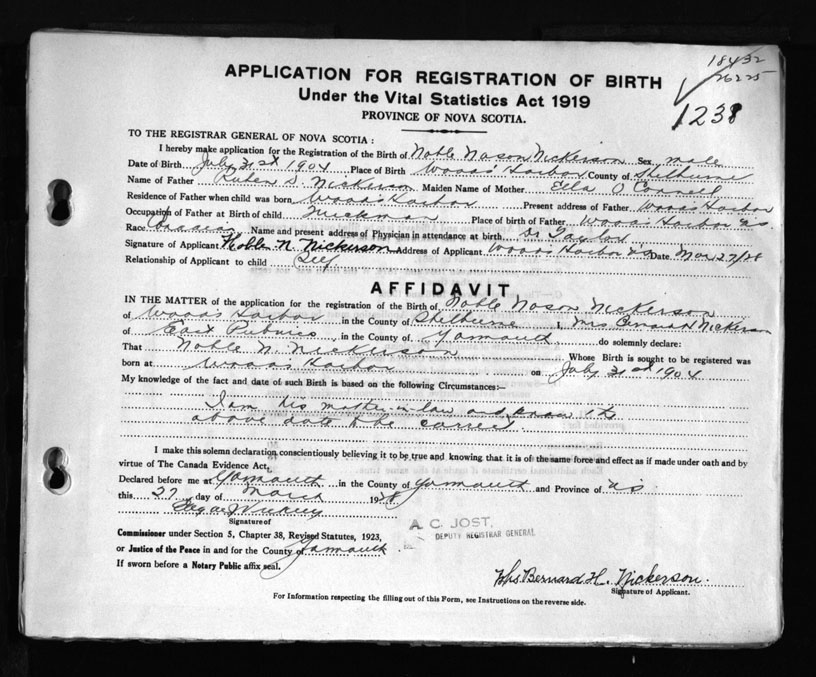 18432
26225
1238
APPLICATION FOR REGISTRATION OF BIRTH
Under the Vital Statistics Act 1919
PROVINCE OF NOVA SCOTIA.
TO THE REGISTRAR GENERAL OF NOVA SCOTIA :
I hereby make application for the Registration of the Birth of Noble Nason Nickerson Sex male
Date of Birth July 31st 1904 Place of Birth Woods Harbor County of Shelburne
Name of Father S. Nickerson Maiden Name of Mother Ella O Connell
Residence of Father when child was born Woods Harbor Present address of Father Woods Harbor
Occupation of Father at Birth of child Place of birth of Father Woods Harbor NS
Race Canadian Name and present address of Physician in attendance at birth Dr
Signature of Applicant Noble N. Nickerson Address of Applicant Woods Harbor NS Date Mar 27/28
Relationship of Applicant to child Self
AFFIDAVIT
IN THE MATTER of the application for the registration of the Birth of Noble Nason Nickerson
of Woods Harbor in the County of Shelburne I, Mrs Bernard H Nickerson
of East Pubnico in the County of Yarmouth do solemnly declare:
That Noble N. Nickerson Whose Birth is sought to be registered was
born at Woods Harbor on July 31st 1904
My knowledge of the fact and date of such Birth is based on the following Circumstances:—
I am his mother-in-law and know the
above date to be correct.
I make this solemn declaration conscientiously believing it to be true and knowing that it is of the same force and effect as if made under oath and by
virtue of The Canada Evidence Act.
Declared before me at Yarmouth in the County of Yarmouth and Province of NS
this 27 day of March 1928
Signature of
Commissioner under Section 5, Chapter 38, Revised Statutes, 1923,
or Justice of the Peace in and for the County of Yarmouth
If sworn before a Notary Public affix seal.
A. C. JOST,
DEPUTY REGISTRAR GENERAL
Mrs. Bernard H. Nickerson.
Signature of Applicant.
For Information respecting the filling out of this Form, see Instructions on the reverse side.